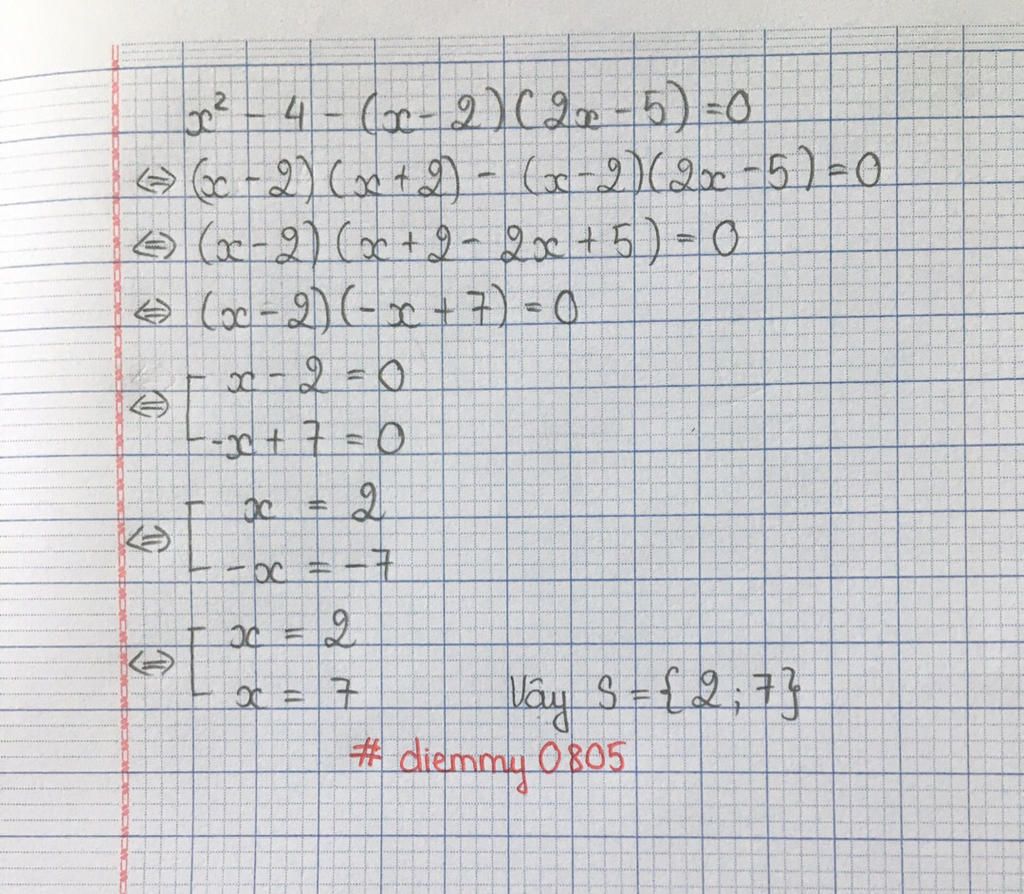 x² - 4 - (x - 2)(2x - 5) = 0
⇔ (x - 2)(x + 2) - (x - 2)(2x - 5) = 0
⇔ (x - 2)(x + 2 - 2x + 5) = 0
⇔ (x - 2)(-x + 7) = 0
⇔ [ x - 2 = 0
-x + 7 = 0
⇔ [ x = 2
-x = -7
⇔ [ x = 2
x = 7 Vây S = {2; 7}
# diemmy 0805